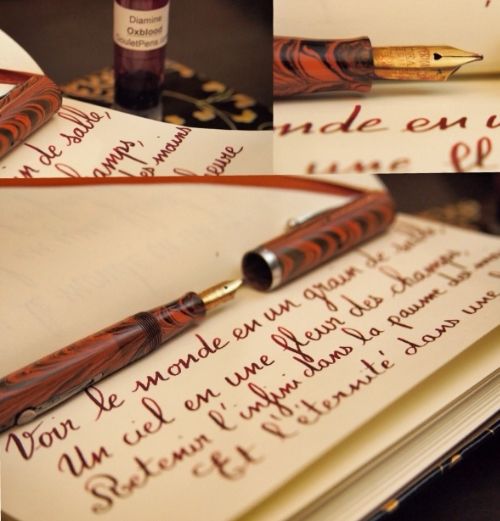 Diamine
Oxblood
GouletPens.com
n de salle,
hamps,
des mains
heure
nde en u
une fl
Voir le monde en un grain de salle,
Un ciel en une fleur des champs,
Retenir l'infini dans la paume des
Et l'éternité dans une